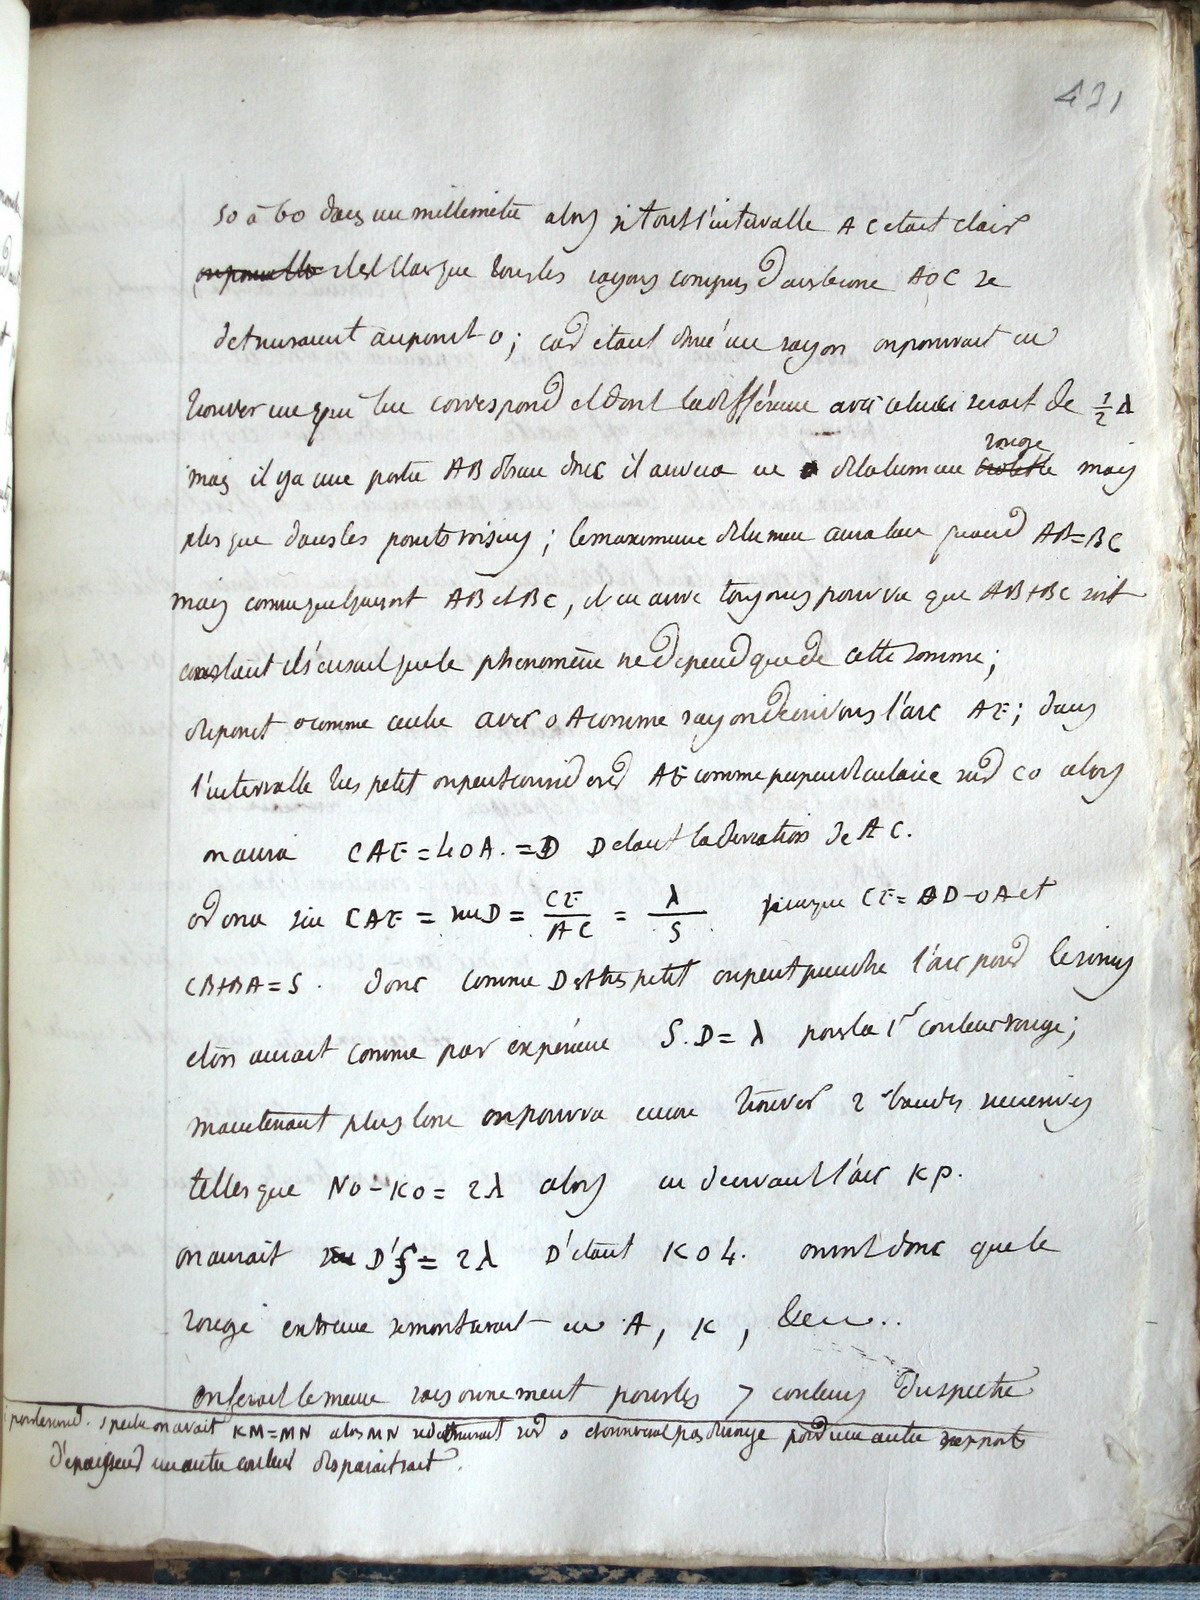 431
50 à 60 dans un millimetre alors si tout l'intervalle AC etait clair
il est clair que tous les rayons compris dans le cone AOC se
detruiraient au point o; car etant donné un rayon on pourrait en
trouver un qui lui correspond et dont la différence avec celui ci serait de ½ λ
mais il y a une partie AB obscure donc il arrivera en o de la lumiere rouge mais
plus que dans les points voisins; le maximum de lumiere aura lieu quand AB=BC
mais comme quelque soit AB et BC, il en arrive toujours pourvu que AB+BC soit
constant il s'ensuit que le phenomène ne depend que de cette somme;
du point o comme centre avec oA comme rayon decrivons l'arc AE; dans
l'intervalle très petit on peut considerer AE comme perpendiculaire sur CO alors
on aura CAE = LOA. = D D etant la deviation de AC.
or on a sin CAE = sin D = CE/AC = λ/S puisque CE = AO-OA et
CB+BA = S. donc comme D est très petit on peut prendre l'arc pour le sinus
et on aurait comme par expérience S.D = λ pour la 1re couleur rouge;
maintenant plus loin on pourra encore trouver 2 bandes successives
telles que NO-KO = 2λ alors en decrivant l'arc KP.
on aurait D'S = 2λ D' etant KOL. on voit donc que le
rouge extreme se montrerait en A, K, &c..
on ferait le meme raisonnement pour les 7 couleurs du spectre
pour le second spectre on avait KM=MN alors MN se detruirait sur o et on n'aurait pas de rouge pour un autre rapport
d'epaisseur une autre couleur disparaitrait.